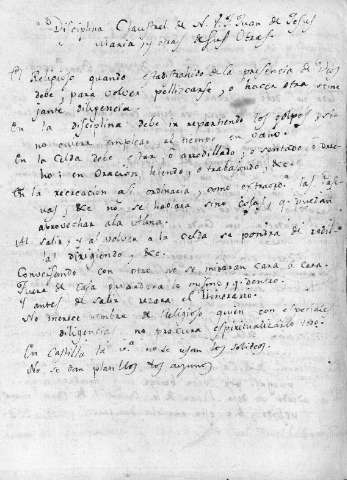 Disciplina Claustral de N. V. P. Juan de Jesus
Maria, y otras de sus Obras.
El Religioso quando esta distrahido de la presencia de Dios
debe, para volver pellizcarse, o hacer otra seme
jante diligencia.
En la disciplina debe ir repartiendo los golpes, y si
no quiera empicar el tiempo en vano.
En la Celda debe estar, o arrodillado, o sentado, o dre
cho; en Oracion, leiendo, o trabajando, &c.
En la recreacion asi ordinaria, como extraord.
&c no se hablara sino cosas, q. puedan
aprovechar al Alma.
Al salir, y al volver a la celda se pondra de rodil
las dirigiendo, &c.
Conversando con otro no se miraran cara à cara.
Fuera de casa guardarse lo mismo, q. dentro.
Y antes de salir rezara el itinerario.
No merece nombre de religioso quien con especial
diligencia no procura espiritualizarlo todo.
En Castilla la no se usan los solideos.
No se dan platillos los ayunos.